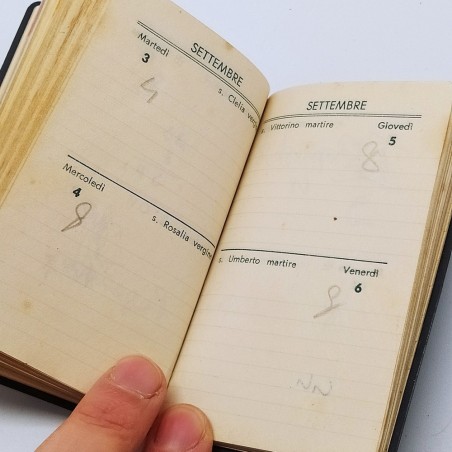 SETTEMBRE
Martedì
3
s. Clelia vergi
Mercoledì
4
s. Rosalia vergine
SETTEMBRE
s. Vittorino martire
Giovedì
5
8
s. Umberto martire
Venerdì
6